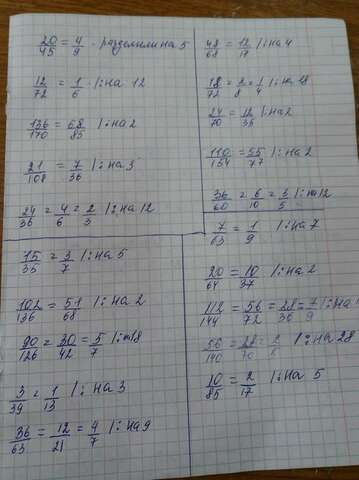 20/45 = 4/9 · разделили на 5
12/72 = 1/6 · |: на 12
136/170 = 68/85 |: на 2
21/108 = 7/36 |: на 3
24/36 = 4/6 = 2/3 |: на 12
15/35 = 3/7 |: на 5
102/136 = 51/68 |: на 2
90/126 = 30/42 = 5/7 |: на 18
3/39 = 1/13 |: на 3
36/63 = 12/21 = 4/7 |: на 9
48/68 = 12/17 |: на 4
18/72 = 2/8 = 1/4 |: на 18
24/70 = 12/36 |: на 2
110/154 = 55/77 |: на 2
36/60 = 6/10 = 3/5 |: на 12
7/63 = 1/9 |: на 7
20/64 = 10/37 |: на 2
112/144 = 56/72 = 28/36 = 7/9 |: на
56/140 = 28/70 = 2/5 |: на 28
10/85 = 2/17 |: на 5